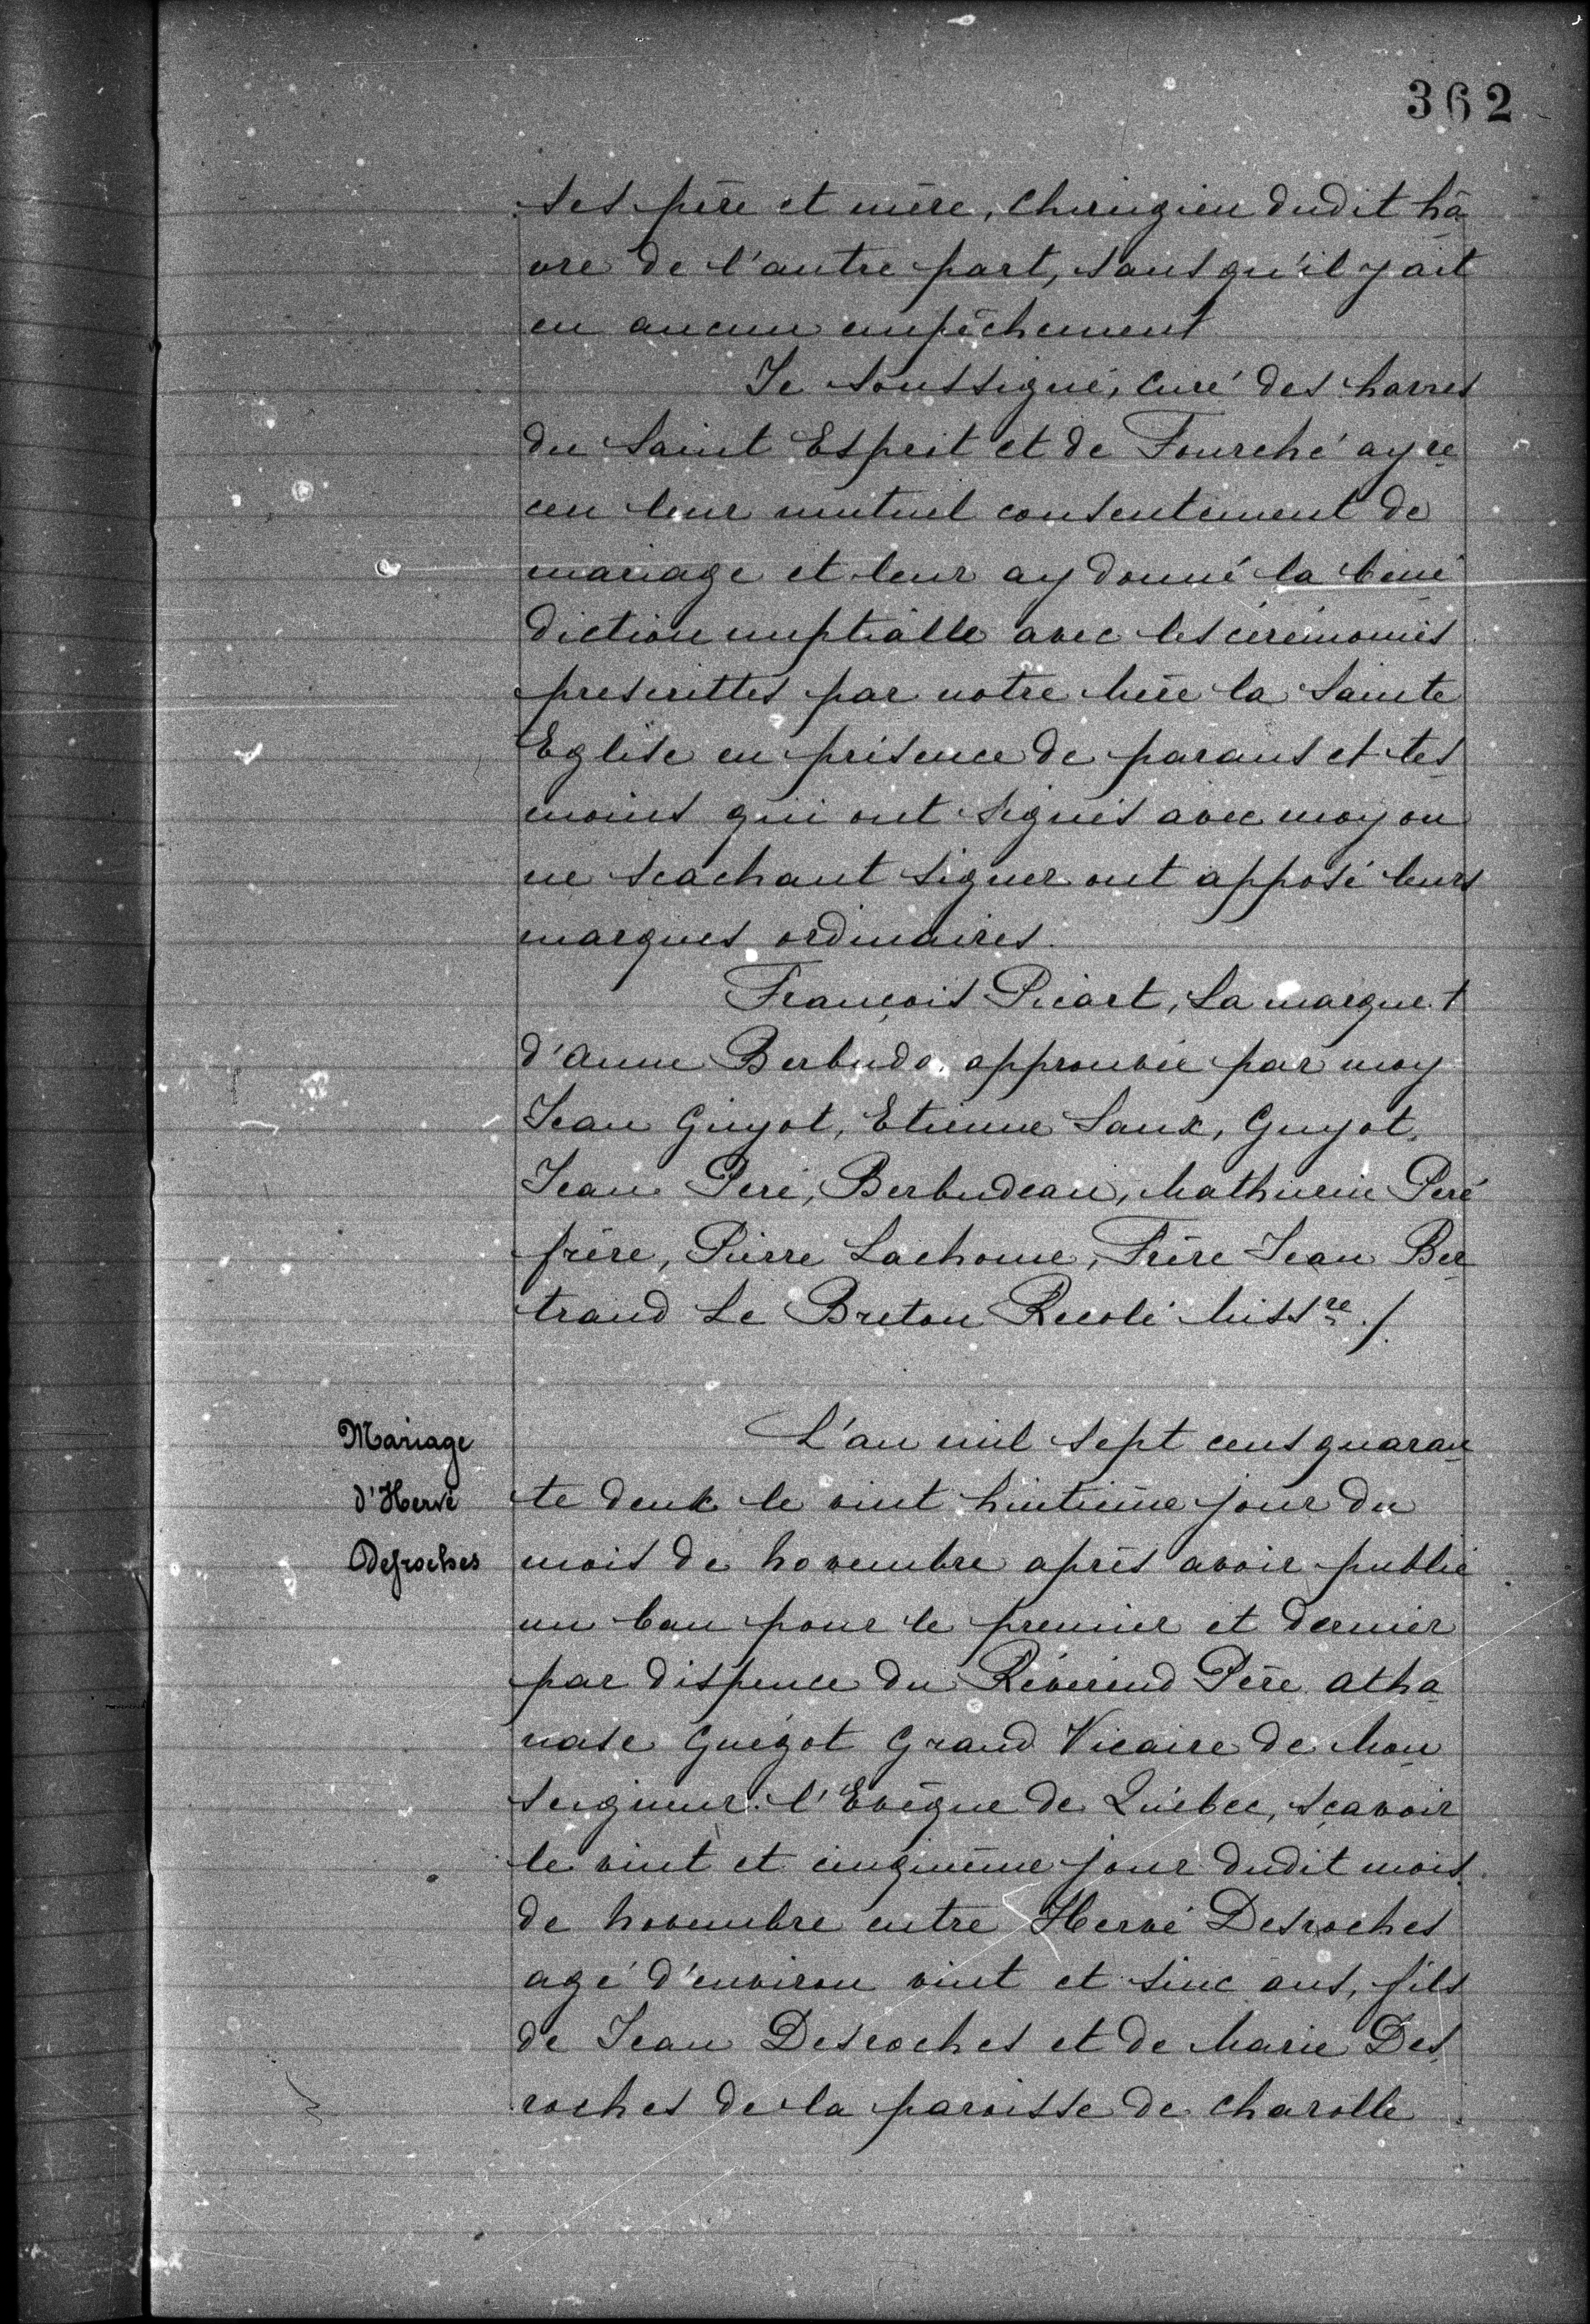 362
ses père et mère, chirugien dudit hâ
vre de l'autre part, sans qu'il y ait
eu aucun empêchement
Je soussigné, curé des havres
du Saint Esprit et de Fourché ay re
ceu leur mutuel consentement de
mariage et leur ay donné la béné
diction nuptialle avec les cérémonies
prescrittes par notre Mère la Sainte
Eglise en présence de parans et tes
moins qui ont signés avec moy ou
ne scachant signer ont apposé leurs
marques ordinaires.
François Picart, La marque †
d'Anne Berbudo, approuvée par moy
Jean Guyot, Etienne Saux, Guyot,
Jean Peré, Berbudeau, Mathurin Peré
frère, Pierre Lachoue, Frère Jean Ber
trand Le Breton Recolé Missre ./.
Mariage
d'Hervé
Desroches
L'an mil sept cens quaran
te deux le vint huitième jour du
mois de Novembre après avoir publié
un ban pour le premier et dernier
par dispence du Révérend Père Atha
nase Guégot Grand Vicaire de Mon
seigneur l'Evêque de Québec, sçavoir
le vint et cinquième jour dudit mois
de Novembre entre Hervé Desroches
agé d'environ vint et sinc ans, fils
de Jean Desroches et de Marie Des
roches de la paroisse de Charolle